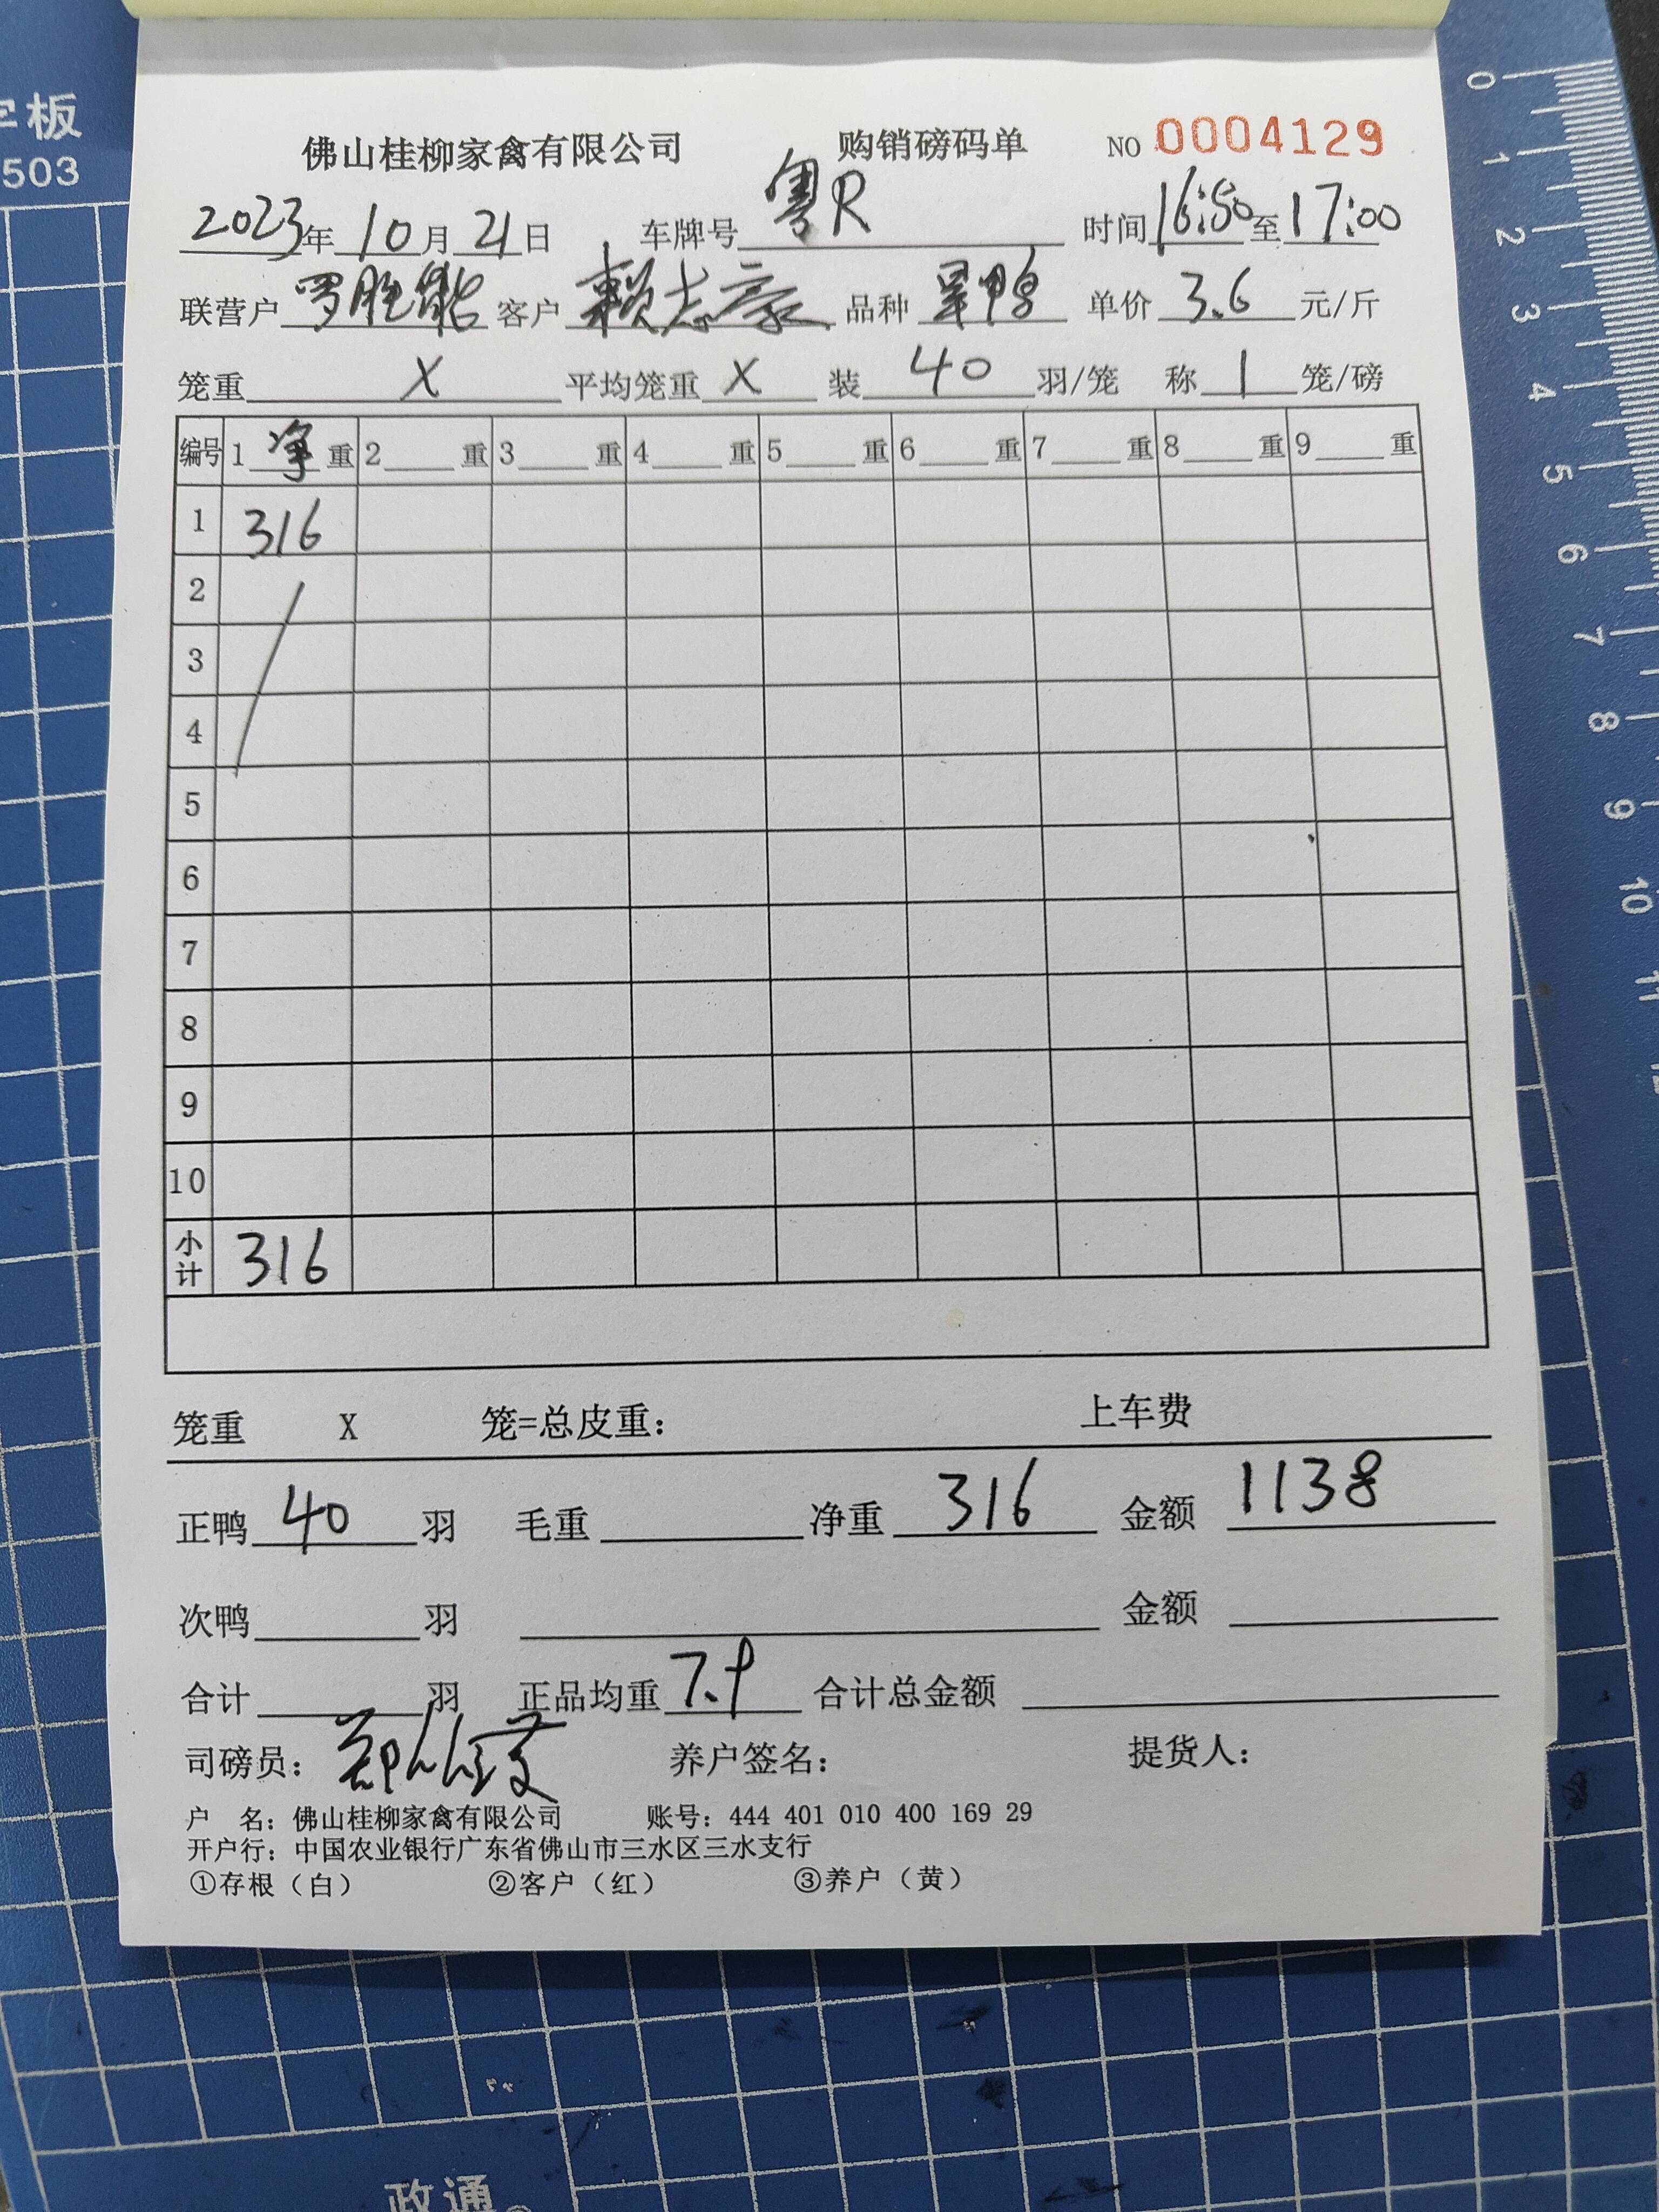 字板
503
佛山桂柳家禽有限公司 购销磅码单 NO 0004129
2023年 10月 21日 车牌号 粤R 时间 16:50 至 17:00
联营户 罗胜能 客户 赖志豪 品种 旱鸭 单价 3.6 元/斤
笼重 X 平均笼重 X 装 40 羽/笼 称 1 笼/磅
编号 1 净 重 2 重 3 重 4 重 5 重 6 重 7 重 8 重 9 重
1 316
2
3
4
5
6
7
8
9
10
小计 316
笼重 X 笼=总皮重： 上车费
正鸭 40 羽 毛重 净重 316 金额 1138
次鸭 羽 金额
合计 羽 正品均重 7.9 合计总金额
司磅员：郑 养户签名： 提货人：
户 名：佛山桂柳家禽有限公司 账号：444 401 010 400 169 29
开户行：中国农业银行广东省佛山市三水区三水支行
①存根（白） ②客户（红） ③养户（黄）
0
1
2
3
4
5
6
7
8
9
10
11
12
政通